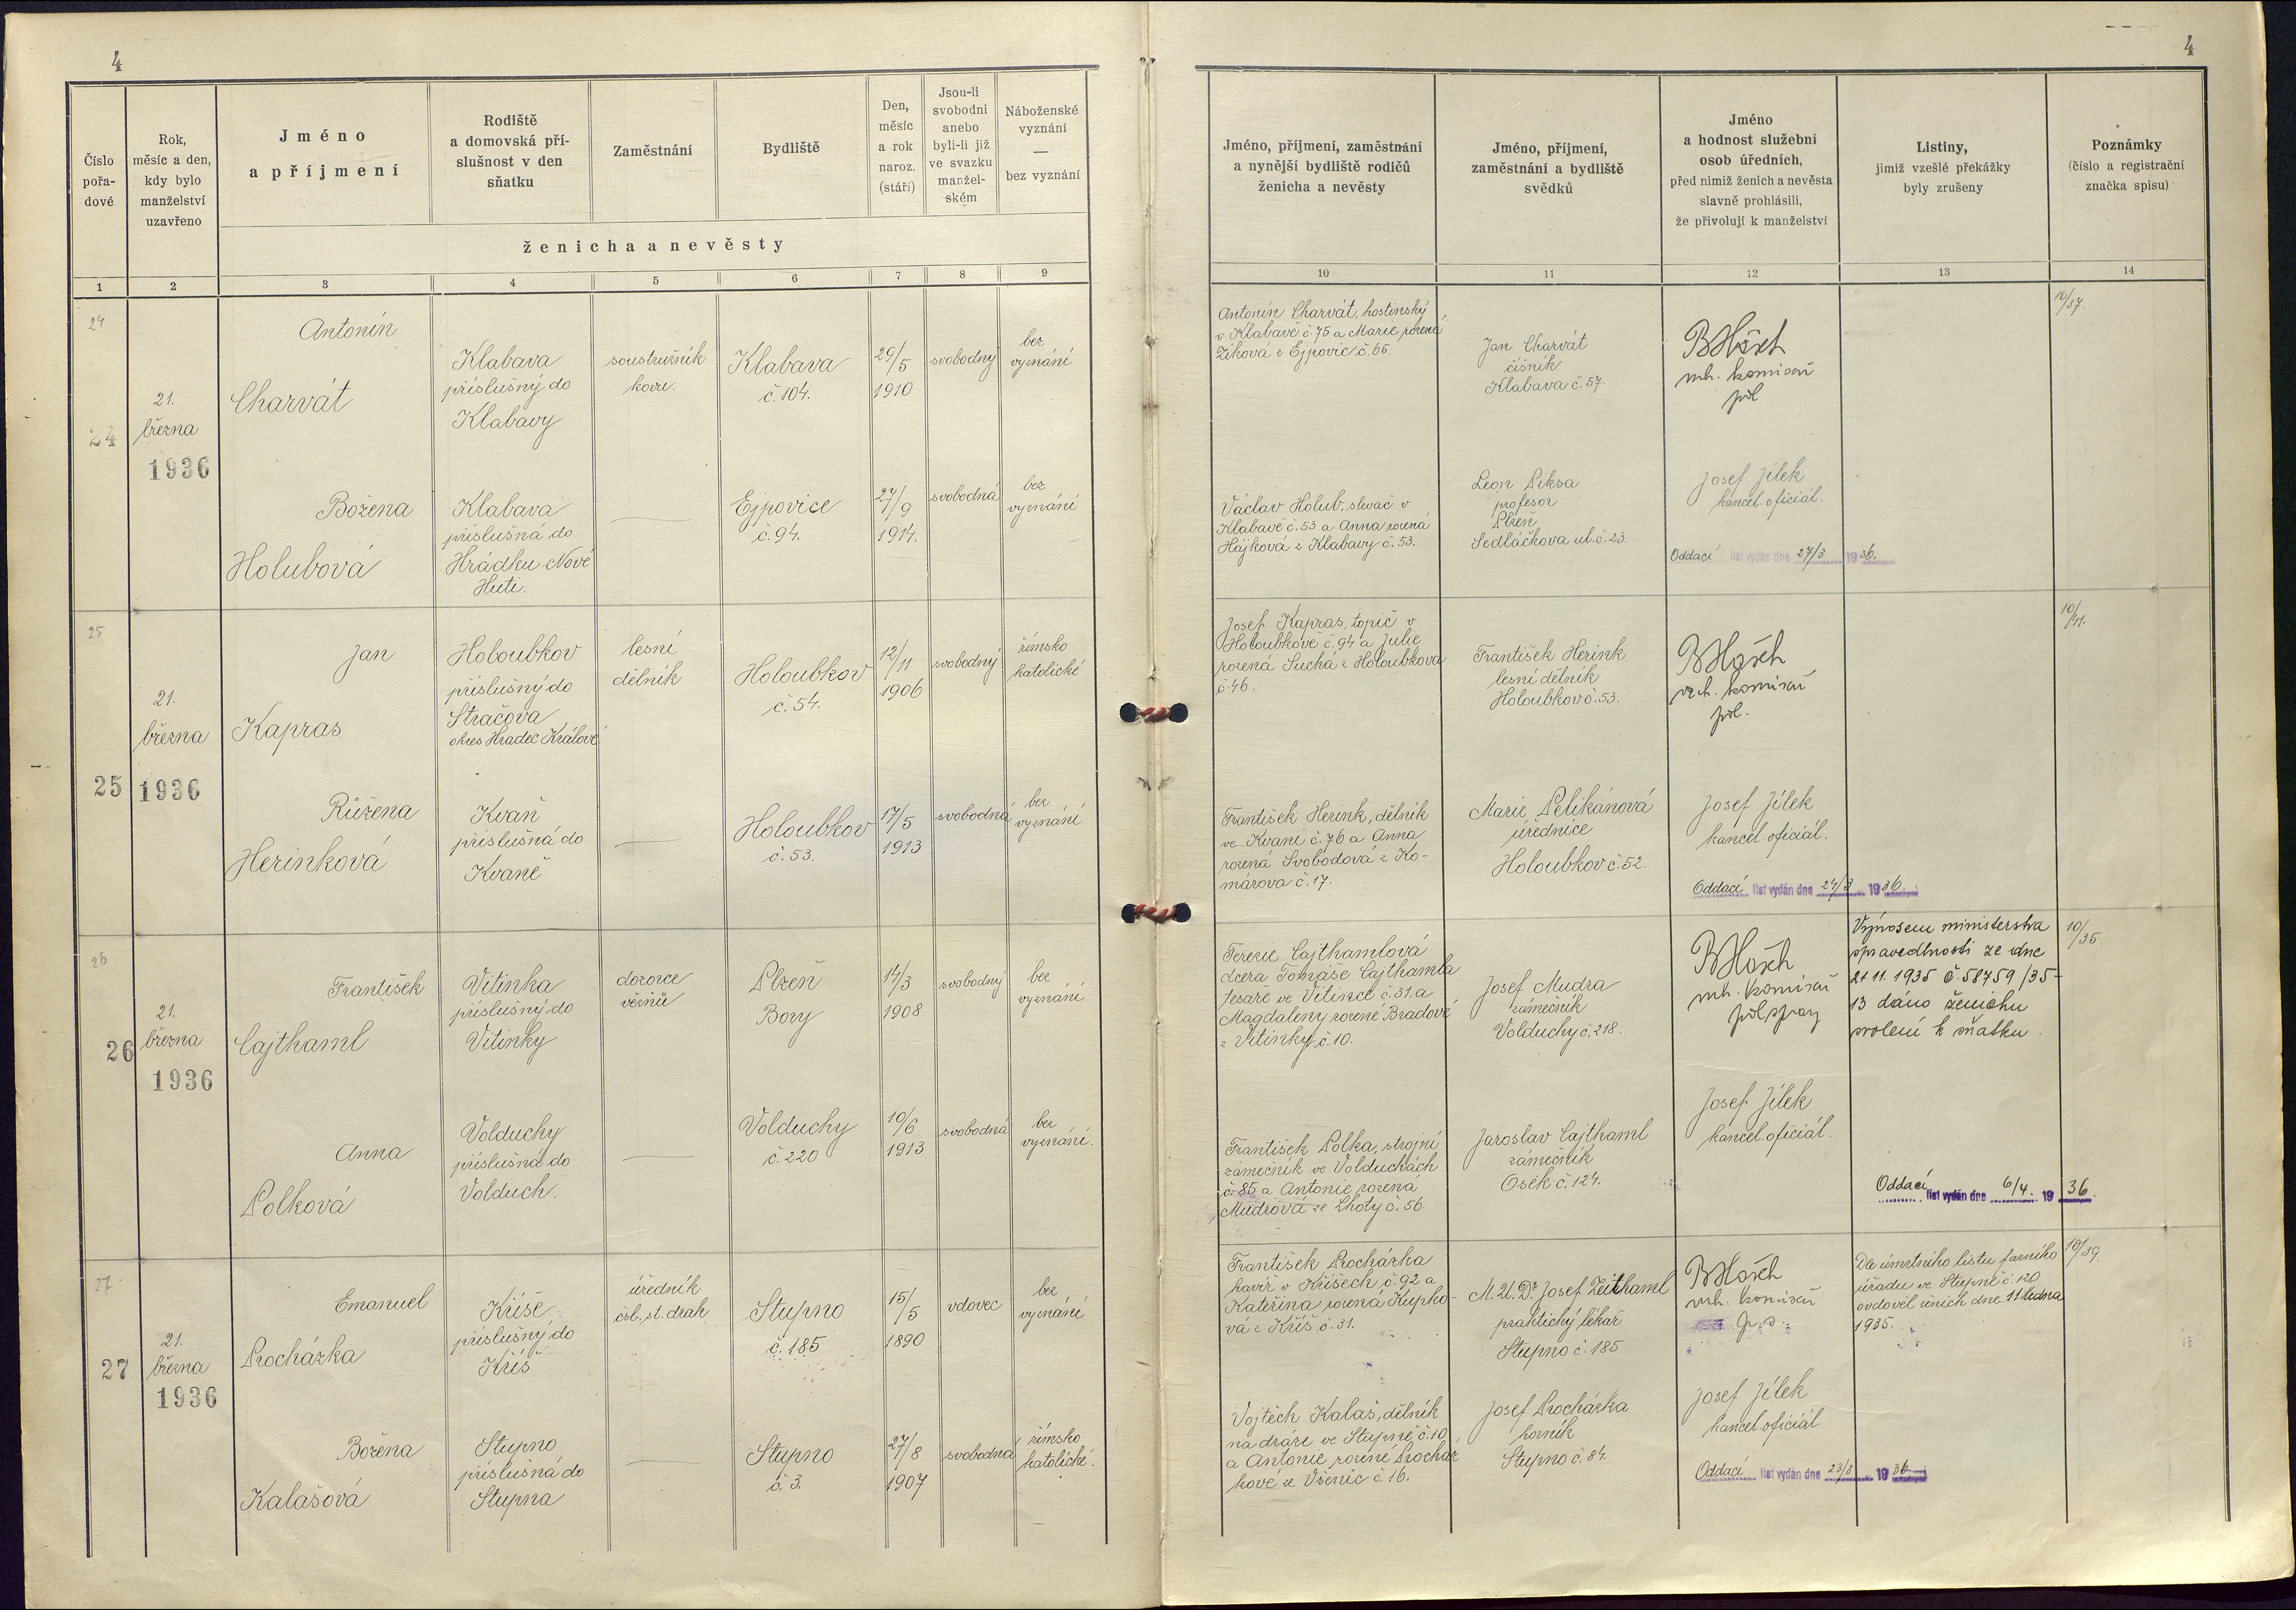 4
4
Číslo
pořa-
dové
Rok,
měsíc a den,
kdy bylo
manželství
uzavřeno
Jméno
a příjmení
Rodiště
a domovská pří-
slušnost v den
sňatku
Zaměstnání
Bydliště
Den,
měsíc
a rok
naroz.
(stáří)
Jsou-li
svobodni
anebo
byli-li již
ve svazku
manžel-
ském
Náboženské
vyznání
—
bez vyznání
ženicha a nevěsty
Jméno, příjmení, zaměstnání
a nynější bydliště rodičů
ženicha a nevěsty
Jméno, příjmení,
zaměstnání a bydliště
svědků
Jméno
a hodnost služební
osob úředních,
před nimiž ženich a nevěsta
slavně prohlásili,
že přivolují k manželství
Listiny,
jimiž vzešlé překážky
byly zrušeny
Poznámky
(číslo a registrační
značka spisu)
1 2 3 4 5 6 7 8 9
10 11 12 13 14
24
24
21.
března
1936
Antonín
Charvát
Klabava
příslušný do
Klabavy
soustružník
kovu.
Klabava
č. 104.
29/5
1910
svobodný
bez
vyznání
Antonín Charvát, hostinský
v Klabavě č. 75 a Marie rozená
Zíková z Ejpovic č. 65.
Jan Charvát
číšník
Klabava č. 57.
BHösch
vrch. komisař
pol
10/37.
Božena
Holubová
Klabava
příslušná do
Hrádku-Nové
Huti.
Ejpovice
č. 94.
27/9
1914.
svobodná
bez
vyznání
Václav Holub, slevač v
Klabavě č. 53 a Anna rozená
Hájková z Klabavy č. 53.
Leon Liksa
profesor
Plzeň
Sedláčkova ul. č. 23.
Josef Jílek
kancel. oficiál.
Oddací list vydán dne 27/3 1936.
25
25
21.
března
1936
Jan
Kapras
Holoubkov
příslušný do
Stračova
okres Hradec Králové.
lesní
dělník
Holoubkov
č. 54.
12/11
1906
svobodný
římsko
katolické
Josef Kapras, topič v
Holoubkově č. 94 a Julie
rozená Suchá z Holoubkova
č. 46.
František Herink
lesní dělník
Holoubkov č. 53.
BHösch
vrch. komisař
pol.
10/41.
Růžena
Herinková
Kvaň
příslušná do
Kvaně
Holoubkov
č. 53.
17/5
1913
svobodná
bez
vyznání
František Herink, dělník
ve Kvani č. 76 a Anna
rozená Svobodová z Ko-
márova č. 17.
Marie Pelikánová
úřednice
Holoubkov č. 52.
Josef Jílek
kancel. oficiál.
Oddací list vydán dne 24/3 1936.
26
26
21.
března
1936
František
Cajthaml
Vitinka
příslušný do
Vitinky
dozorce
vězňů
Plzeň
Bory
14/3
1908
svobodný
bez
vyznání
Terezie Cajthamlová
dcera Tomáše Cajthamla
tesaře ve Vitince č. 31. a
Magdaleny rozené Bradové
z Vitinky č. 10.
Josef Mudra
zámečník
Volduchy č. 218.
BHösch
vrch. komisař
pol spray
Výnosem ministerstva
spravedlnosti ze dne
21 11. 1935 č. 58759/35-
13 dáno ženichu
svolení k sňatku.
10/35.
Anna
Polková
Volduchy
příslušná do
Volduch.
Volduchy
č. 220
10/6
1913
svobodná
bez
vyznání.
František Polka, strojní
zámečník ve Volduchách
č. 85 a Antonie rozená
Mudrová ze Lhoty č. 56.
Jaroslav Cajthaml
zámečník
Osek č. 124.
Josef Jílek
kancel. oficiál.
Oddací list vydán dne 6/4. 1936.
27
27
21.
března
1936
Emanuel
Procházka
Kříše
příslušný do
Kříš
úředník
čsl. st. drah
Stupno
č. 185
15/5
1890
vdovec
bez
vyznání
František Procházka
havíř v Kříšech č. 92 a
Kateřina rozená Kupko-
vá z Kříš č. 31.
M. U. Dr. Josef Zeithaml
praktický lékař
Stupno č. 185
BHösch
vrch. komisař
p. s.
Dle úmrtního listu farního
úřadu ve Stupně č. 120
ovdověl ženich dne 11 ledna
1935.
10/39.
Božena
Kalašová
Stupno
příslušná do
Stupna
Stupno
č. 3.
27/8
1907
svobodná
římsko
katolické.
Vojtěch Kalaš, dělník
na dráze ve Stupně č. 10
a Antonie rozené Procház
kové ze Všenic č. 16.
Josef Procházka
horník
Stupno č. 84.
Josef Jílek
kancel. oficiál
Oddací list vydán dne 23/3 1936